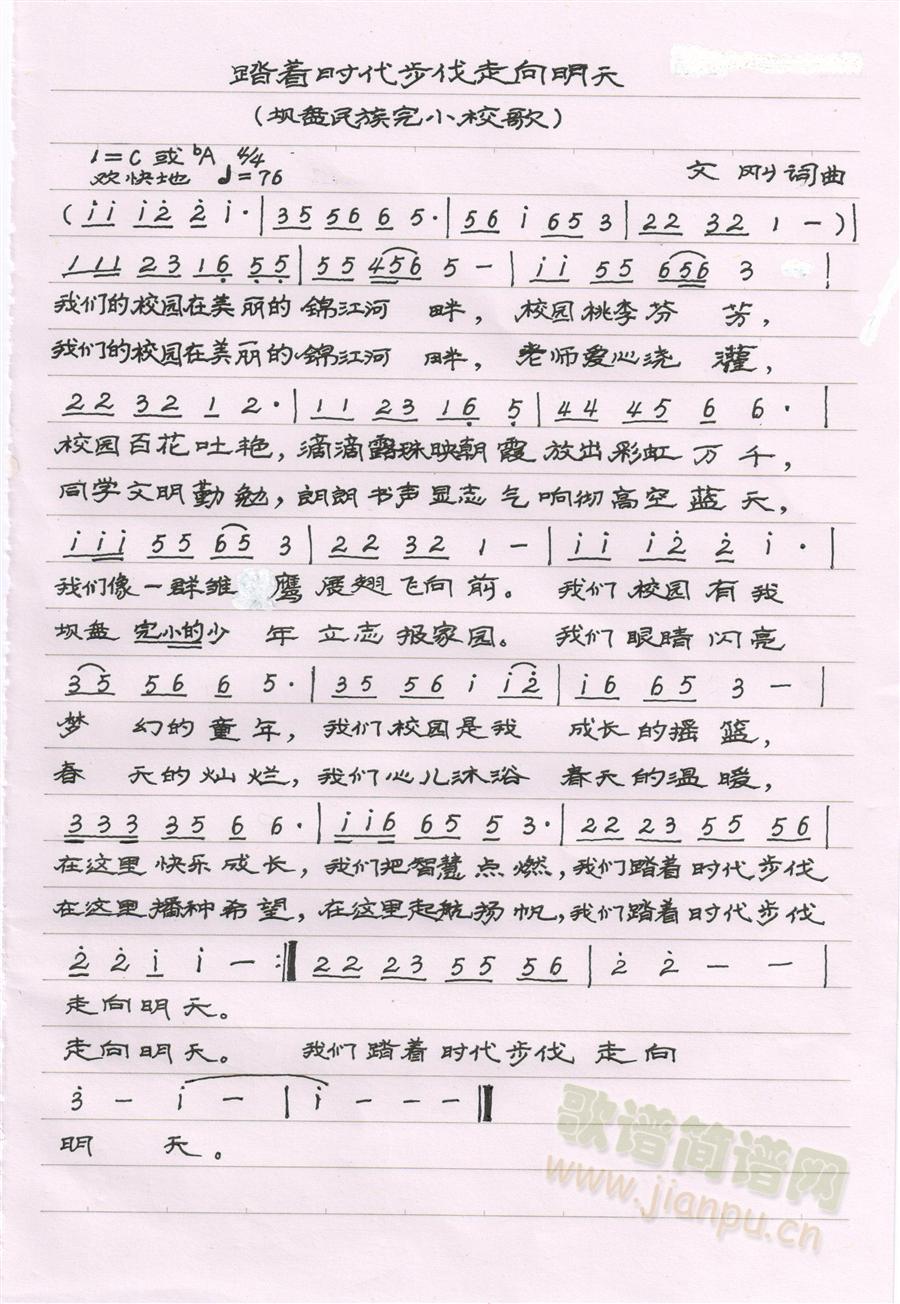 踏着时代步伐走向明天
(坝盘民族完小校歌)
1=C 或 ᵇA 4/4
欢快地 ♩=76 文 刚 词曲
( i̇ i̇ i̇ 2̇ 2̇ i̇ · | 3 5 5 6 6 5 · | 5 6 i̇ 6 5 3 | 2 2 3 2 1 - ) |
1 1 1 2 3 1 6̣ 5̣ 5̣ | 5 5 4 5 6 5 - | i̇ i̇ 5 5 6 5 6 3 |
我们的校园在美丽的锦江河 畔, 校园桃李芬 芳,
我们的校园在美丽的锦江河 畔, 老师爱心浇 灌,
2 2 3 2 1 2 · | 1 1 2 3 1 6̣ 5̣ | 4 4 4 5 6 6 · |
校园百花吐艳, 滴滴露珠映朝霞 放出彩虹万千,
同学文明勤勉, 朗朗书声显志气 响彻高空蓝天,
i̇ i̇ i̇ 5 5 6 5 3 | 2 2 3 2 1 - | i̇ i̇ i̇ 2̇ 2̇ i̇ · |
我们像一群雏 鹰 展翅飞向前。 我们校园有我
坝盘 完小的少 年 立志报家园。 我们眼睛闪亮
3 5 5 6 6 5 · | 3 5 5 6 i̇ i̇ 2̇ | i̇ 6 6 5 3 - |
梦 幻的童年, 我们校园是我 成长的摇篮,
春 天的灿烂, 我们心儿沐浴 春天的温暖,
3 3 3 3 5 6 6 · | i̇ i̇ 6 6 5 5 3 · | 2 2 2 3 5 5 5 6 |
在这里快乐成长, 我们把智慧点燃, 我们踏着时代步伐
在这里播种希望, 在这里起航扬帆, 我们踏着时代步伐
2̇ 2̇ i̇ i̇ - :‖ 2 2 2 3 5 5 5 6 | 2̇ 2̇ - - |
走向明天。
走向明天。 我们踏着时代步伐 走向
3̇ - i̇ - | i̇ - - - ‖
明 天。
歌谱简谱网
www.jianpu.cn